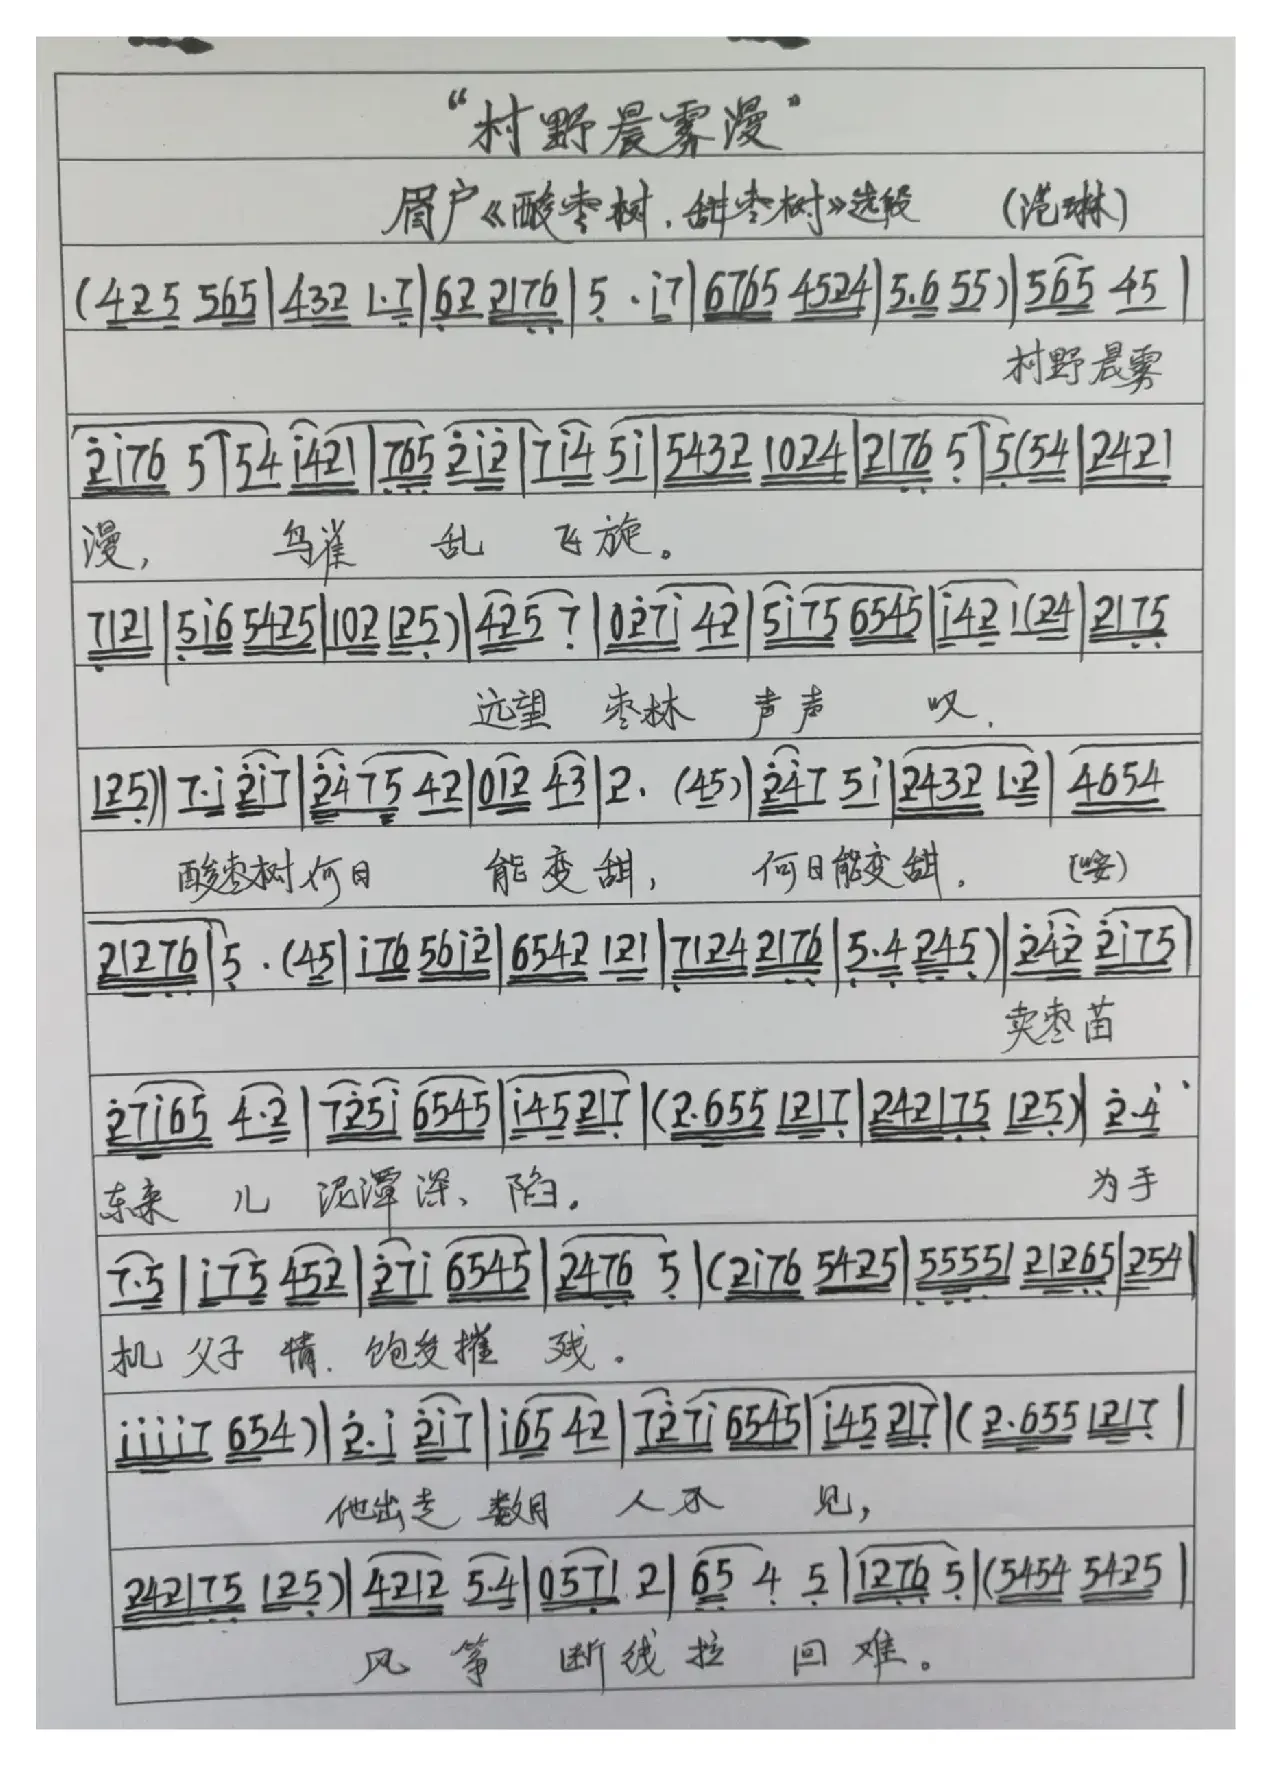 “村野晨雾漫”
眉户《酸枣树、甜枣树》选段 (范琳)
(425 565|432 1·7|62 2176|5 · i7|6765 4524|5·6 55)|565 45|
村野晨雾
2i76 5↑|54 i421|765 2i2|7i4 5i|5432 1024|2176 5↑|5(54|2421
漫, 鸟雀 乱 飞旋。
7121|5i6 5425|102 125)|425 7|027i 42|5i75 6545|i42 1(24|2175
远望 枣林 声声 叹.
125)|7·i 2i7|2475 42|012 43|2· (45)|247 5i|2432 1·2|4654
酸枣树何日 能变甜, 何日能变甜. (唉)
21276|5 ·(45|i76 56i2|6542 121|7124 2176|5·4 245)|242 2i75|
卖枣苗
27i65 4·2|725i 6545|i45217|(2·655 1217|242175 125)|2·4
东来 儿 泥潭深、陷。 为手
7·5|i75 452|27i 6545|2476 5|(2i76 5425|55551 21265|254|
机 父子 情. 饱受摧 残。
iiii7 654)|2·i 2i7|i65 42|727i 6545|i45 217|(2·655 1217|
他出走 数月 人不 见,
242175 125)|4212 5·4|0571 2|65 4 5|1276 5|(5454 5425|
风 筝 断线拉 回难。